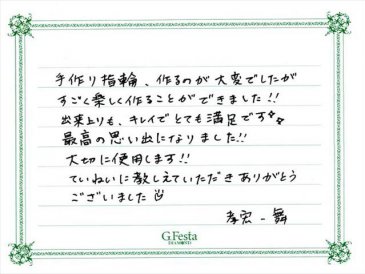 手作り指輪、作るのが大変でしたが
すごく楽しく作ることができました!!
出来上りも、キレイでとても満足です
最高の思い出になりました!!
大切に使用します!!
ていねいに教えていただきありがとう
ございました
孝宏 - 舞
G.Festa
DIAMOND